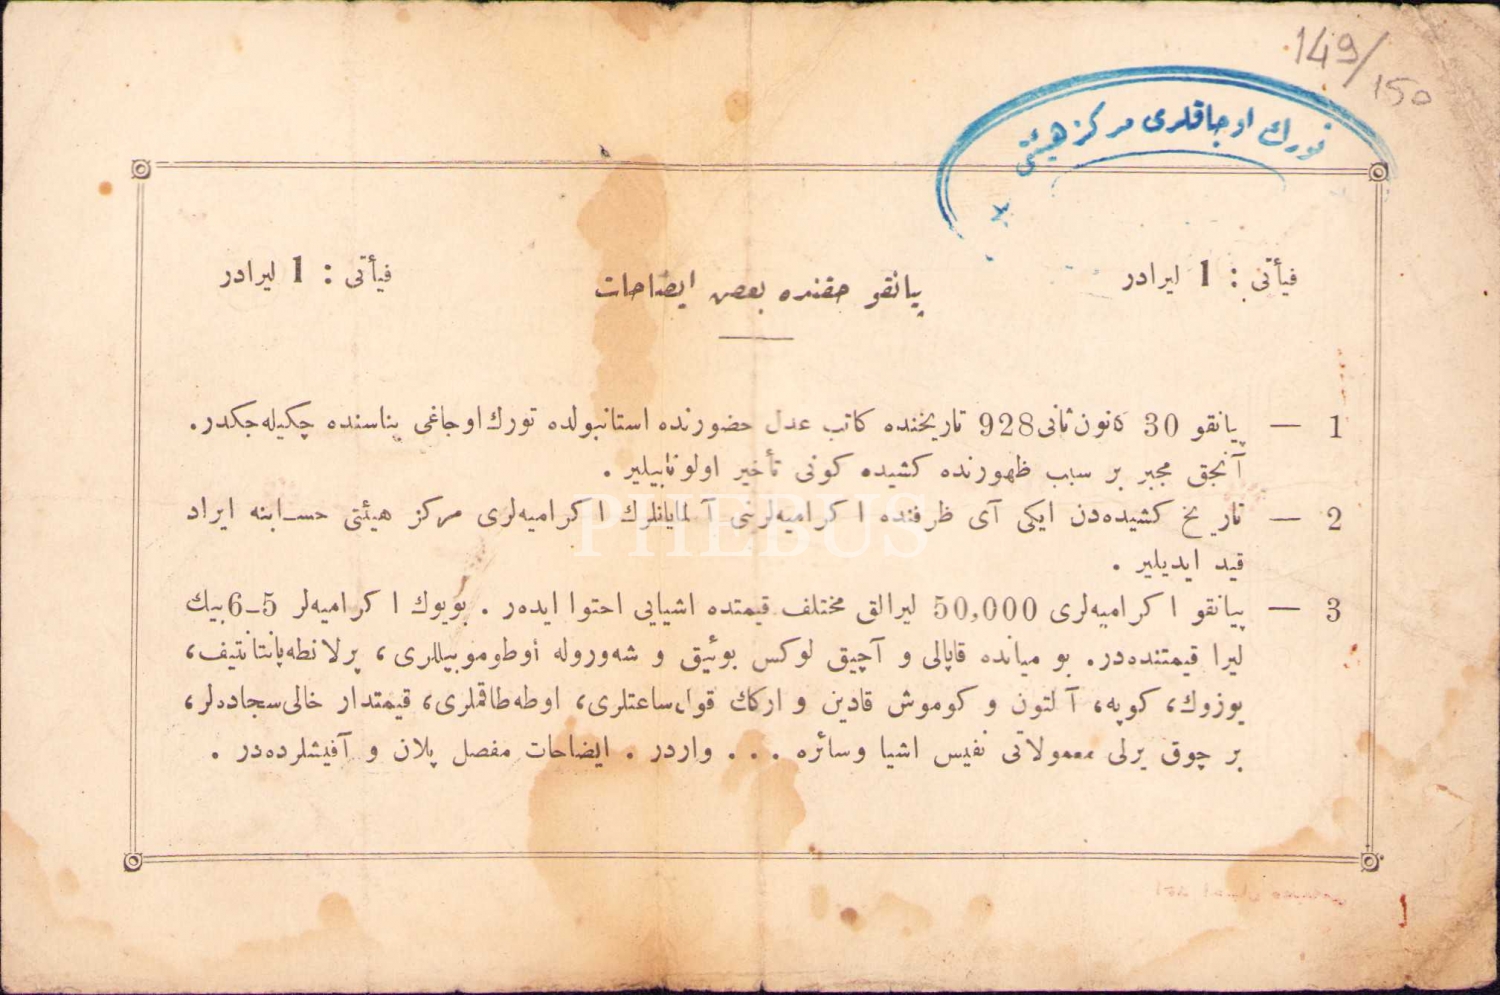 149/150
تورك اوجاقلری مركز هیئتی
فیأتی : 1 لیرادر
پیانقو حقنده بعض ایضاحات
فیأتی : 1 لیرادر
1 — پیانقو 30 كانون‌ثانی 928 تاریخنده كاتب عدل حضورنده استانبولده تورك‌اوجاغی بناسنده چكیله‌جكدر.
آنجق مجبر بر سبب ظهورنده كشیده كونی تأخیر اولونابیلیر .
2 — تاریخ كشیده‌دن ایكی آی ظرفنده اكرامیه‌لرینی آلمایانلرك اكرامیه‌لری مركز هیئتی حسابنه ایراد
قید ایدیلیر .
3 — پیانقو اكرامیه‌لری 50,000 لیرالق مختلف قیمتده اشیایی احتوا ایدەر . بویوك اكرامیه‌لر 5-6 بیك
لیرا قیمتنده‌در. بو میانده قاپالی و آچیق لوكس بوئیق و شه‌وروله أوطوموبیللری، پرلانطه‌پانتانتیف،
یوزوك، كوپه، آلتون و كوموش قادین و اركك قول‌ساعتلری، اوطه‌طاقملری، قیمتدار خالی‌سجاده‌لر،
بر چوق یرلی معمولاتی نفیس اشیا وسائره . . . واردر . ایضاحات مفصل پلان و آفیشلرده‌در .
PHEBUS